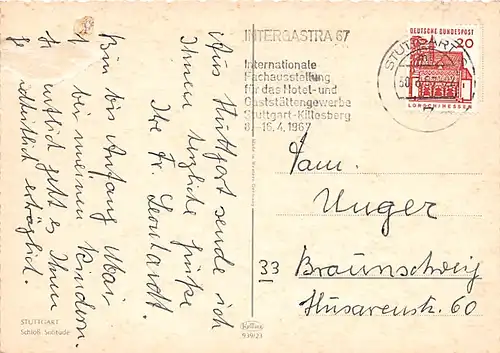 Aus Stuttgart sende ich
Ihnen herzliche Grüße
Ihre Fr. Leonhardt.
Bin bis Anfang Mai
bei meinen Kindern.
geht es Ihnen
erträglich.
STUTTGART
Schloß Solitude
939/23
INTERGASTRA 67
Internationale
Fachausstellung
für das Hotel- und
Gaststättengewerbe
Stuttgart-Killesberg
8.-16.4.1967
STUTTGART
DEUTSCHE BUNDESPOST
20
LORSCH/HESSEN
Fam.
Unger
33 Braunschweig
Husarenstr. 60